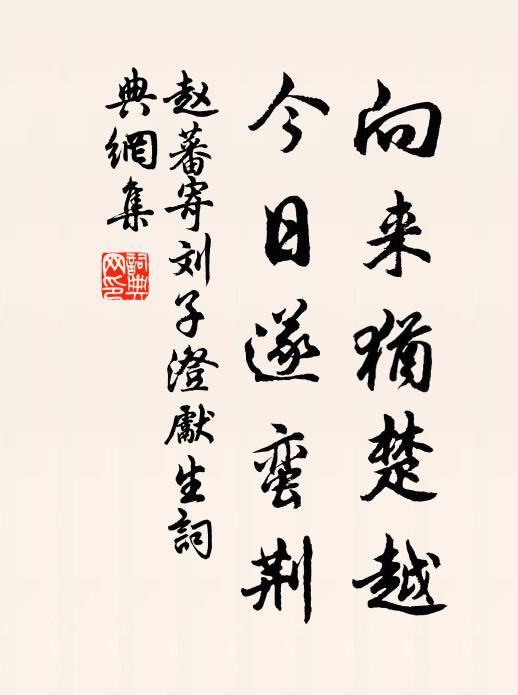 向来猶楚越
今日遂蛮荆
赵蕃寄刘子澄獻生詞
典網集
詞典
网印